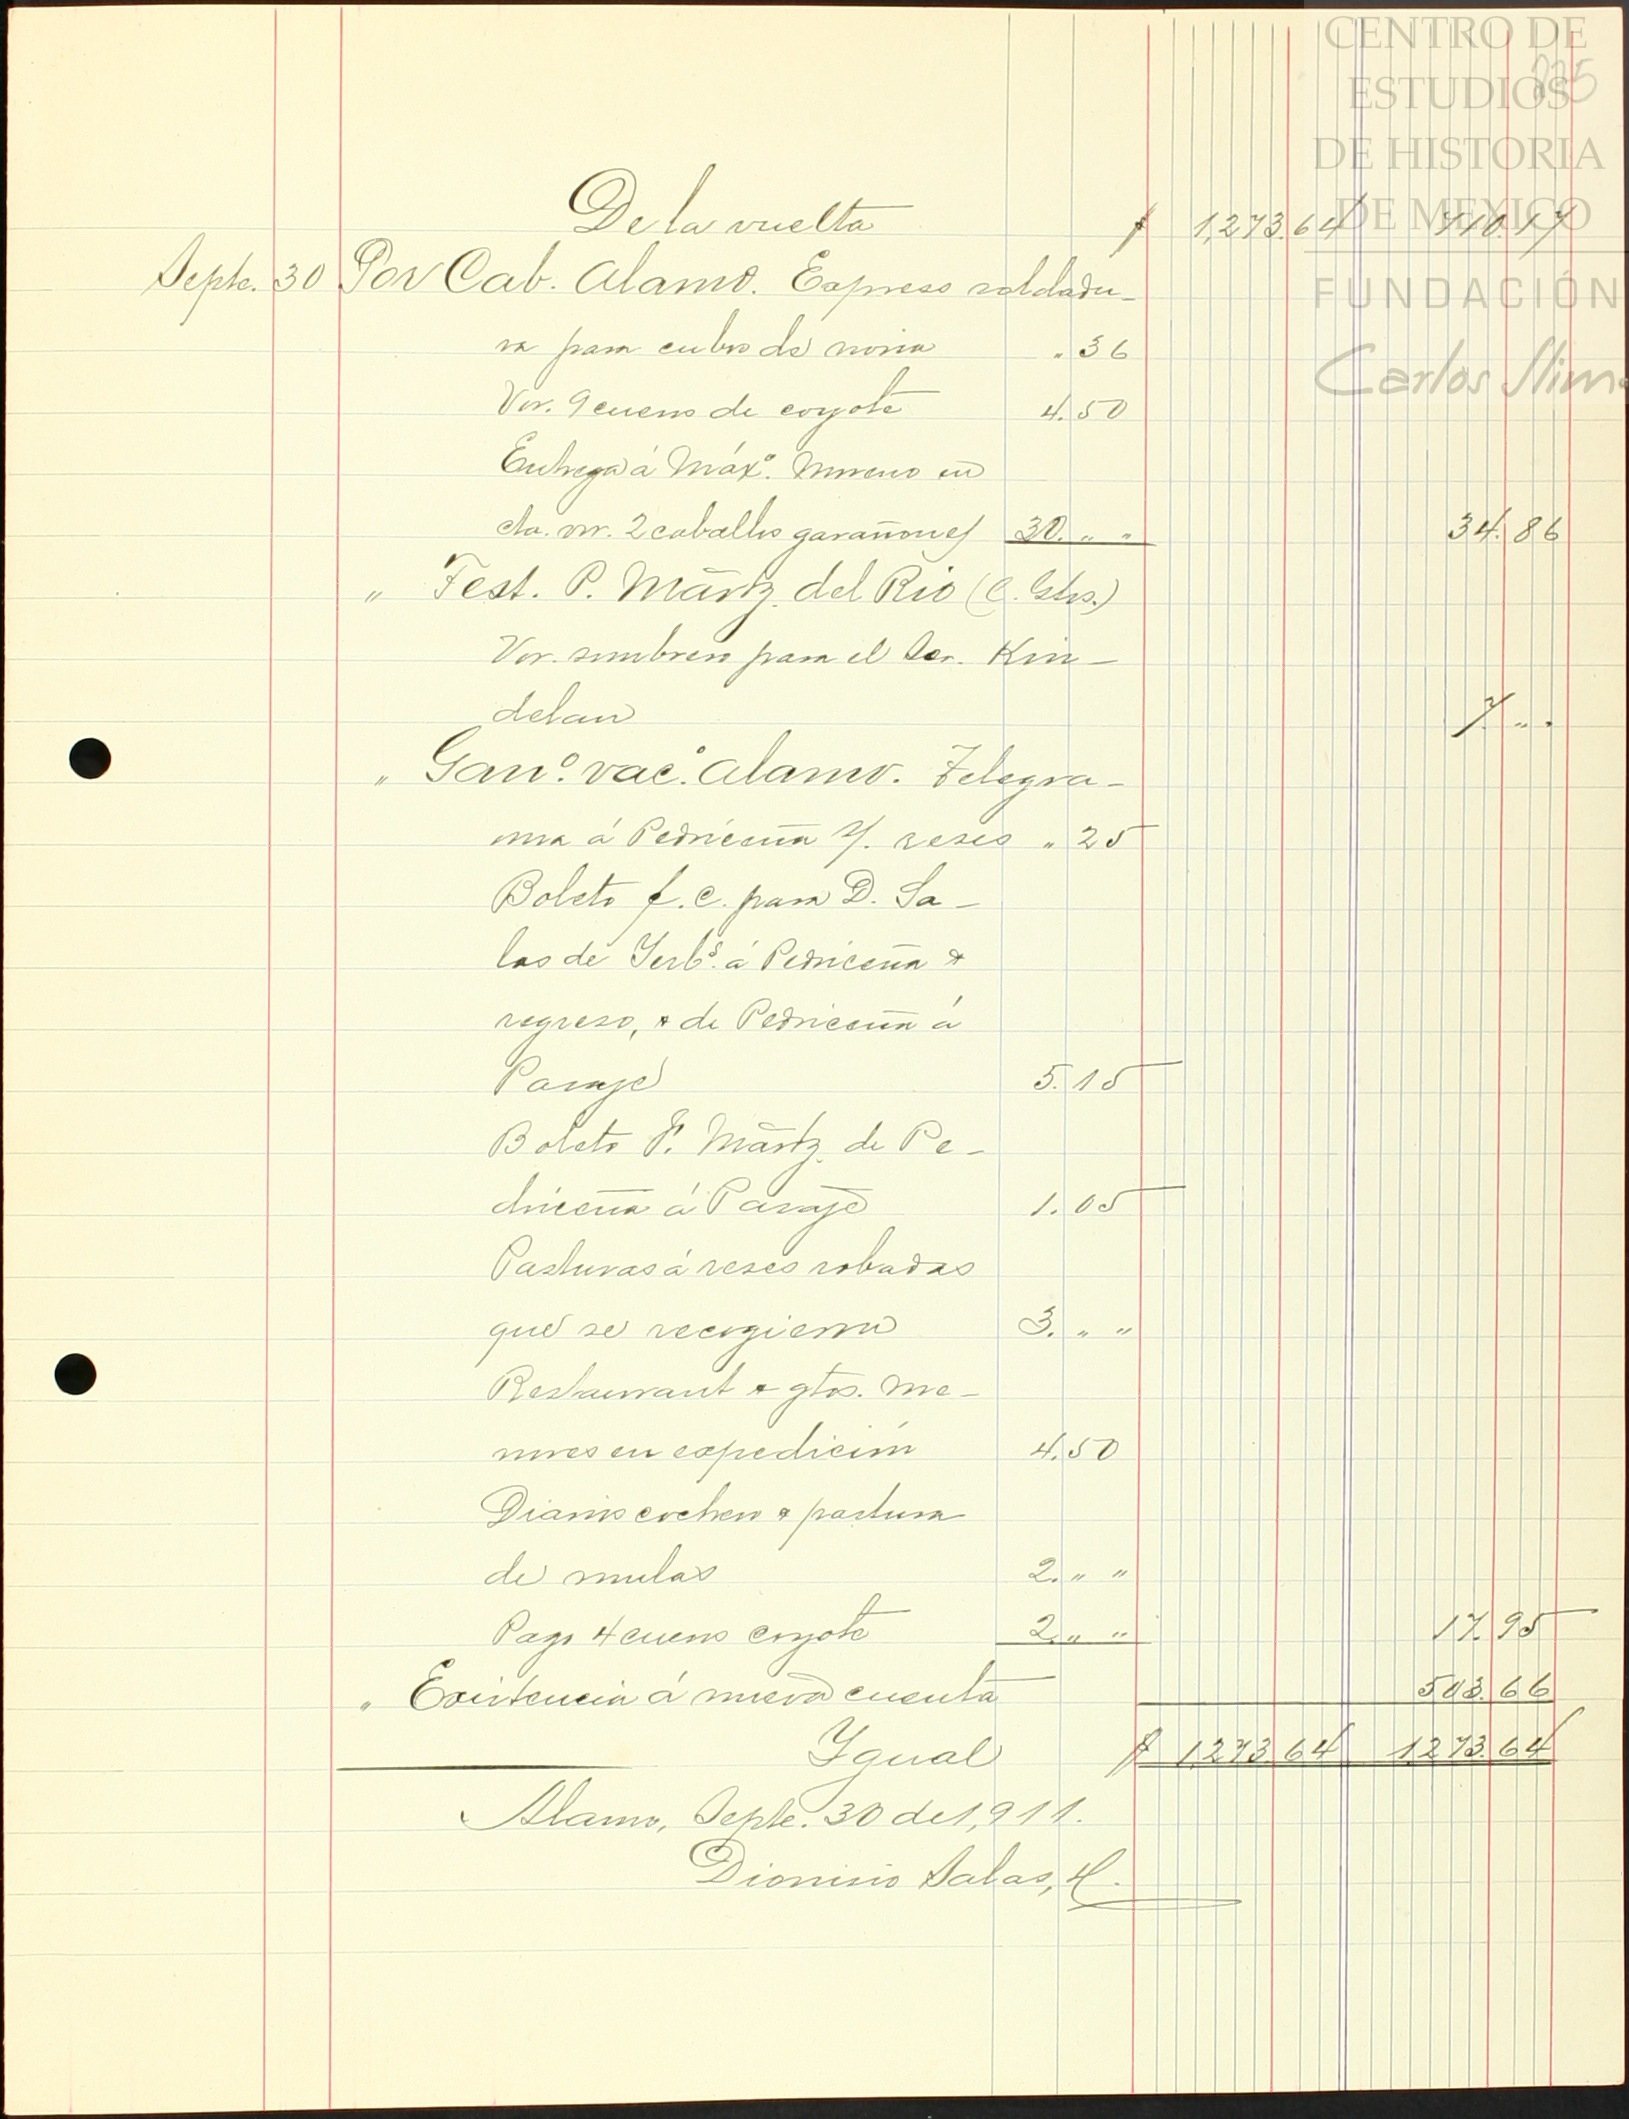 CENTRO DE
ESTUDIOS
DE HISTORIA
DE MEXICO
FUNDACIÓN
Carlos Slim.
225
De la vuelta $ 1,273.64 710.17
Septe. 30 Por Cab. Alamo. Expreso soldadu-
ra para cubos de noria " 36
Vor. 9 cueros de coyote 4.50
Entrega á Máxº. Moreno en
cta. vor. 2 caballos garañones 30. " " 34.86
" Test. P. Martz. del Rio (C. Gtos.)
Vor. sombrero para el Sor. Kin-
delan 7. " "
" Ganº. vacº. Alamo. Telegra-
ma á Pedriceña s/. reses " 25
Boleto f. c. para D. Sa-
las de Yerbs. á Pedriceña &
regreso, & de Pedriceña á
Pasaje 5.15
Boleto F. Martz. de Pe-
driceña á Pasaje 1.05
Pasturas á reses robadas
que se recogieron 3. " "
Restaurant & gtos. me-
nores en expedición 4.50
Diario cochero & pastura
de mulas 2. " "
Pago 4 cueros coyote 2. " " 17.95
" Existencia á nueva cuenta 503.66
Ygual $ 1273.64 1273.64
Alamo, Septe. 30 de 1,911.
Dionisio Salas, H.